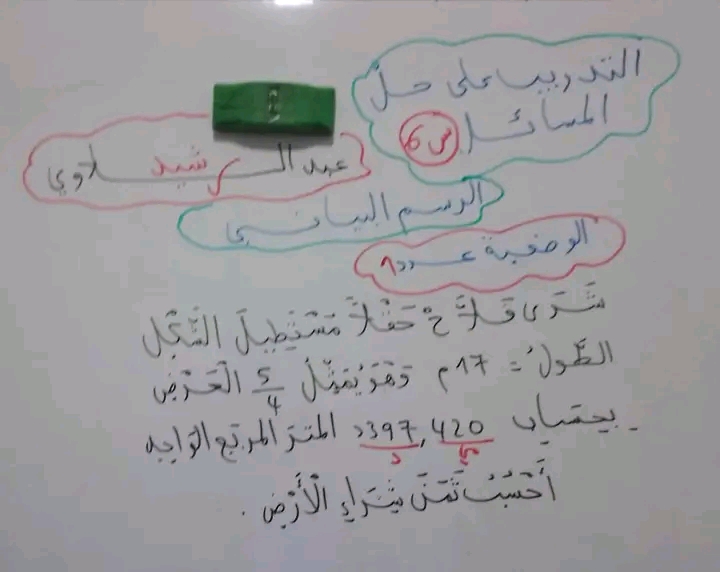 التدريب على حل
المسائل س6
عبد الرشيد لاوي
الرسم البياني
الوضعية عدد 1
شَرَى فَلاَّحٌ حَقْلاً مُسْتَطِيلَ الشَّكْلِ
الطّولُ = 17م وَهْوَ يُمَثِّلُ 5/4 الْعَرْضِ
بِحِسَابِ 397,420د المتر المربّع الوَاحِد
أَحْسُبُ ثَمَنَ شِرَاءِ الْأَرْضِ.